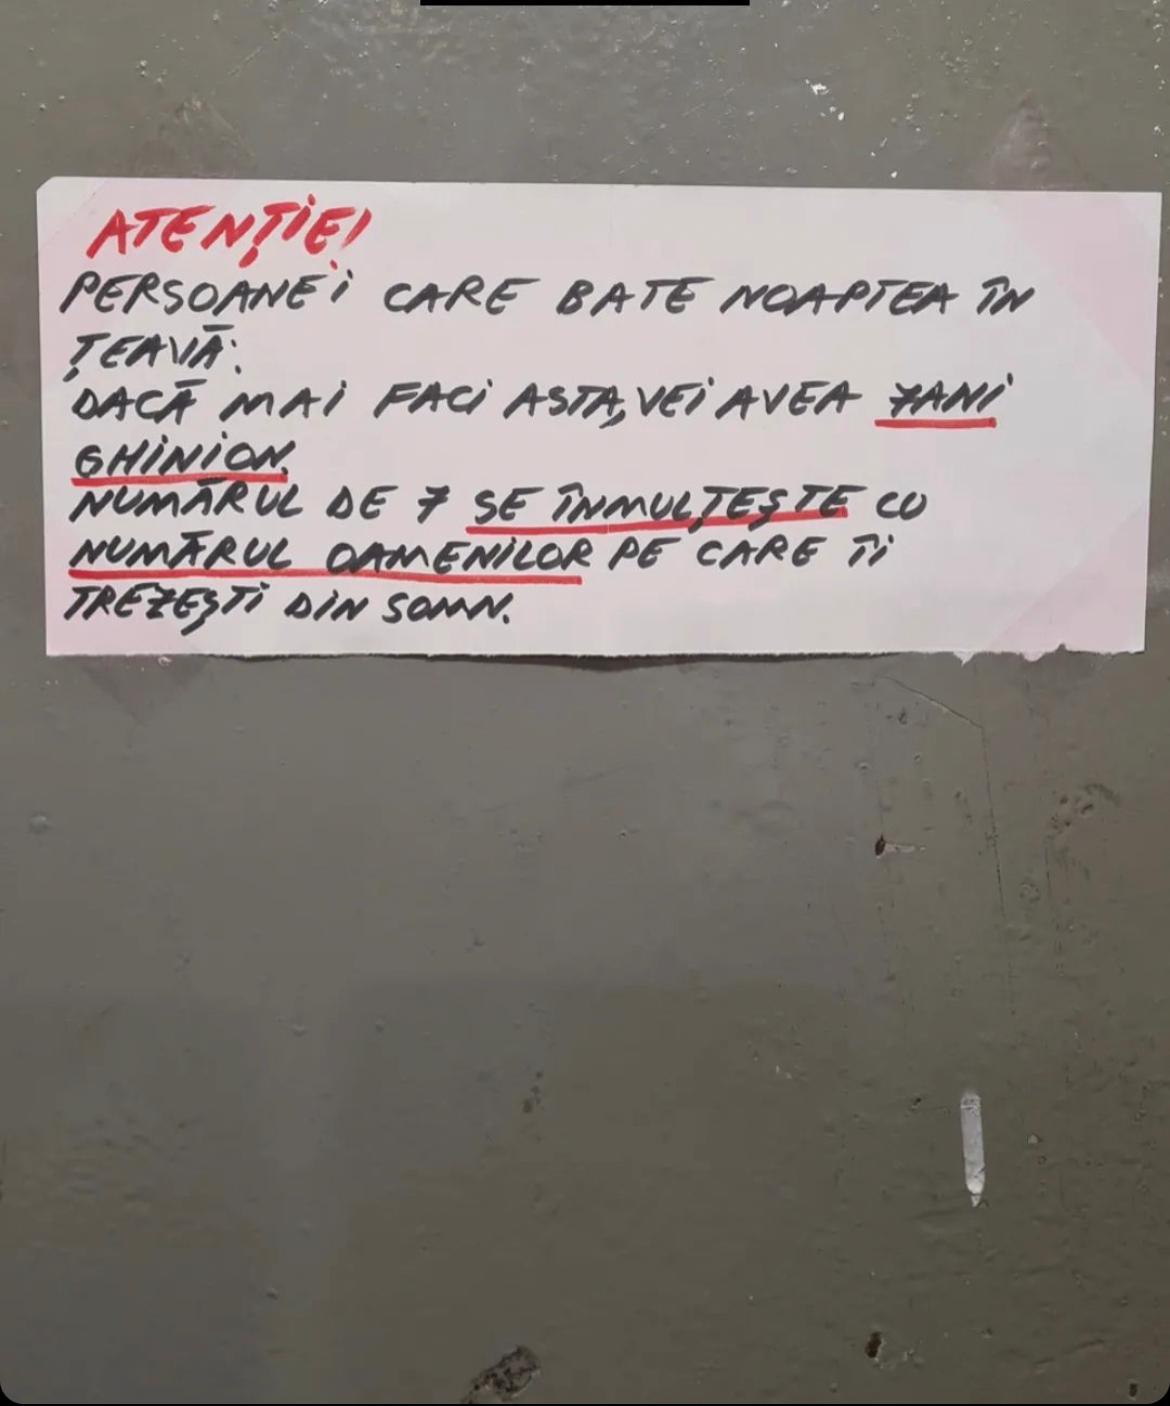 ATENȚIE!
PERSOANEI CARE BATE NOAPTEA ÎN
ȚEAVĂ:
DACĂ MAI FACI ASTA, VEI AVEA 7 ANI
GHINION.
NUMĂRUL DE 7 SE ÎNMULȚEȘTE CU
NUMĂRUL OAMENILOR PE CARE ÎI
TREZEȘTI DIN SOMN.